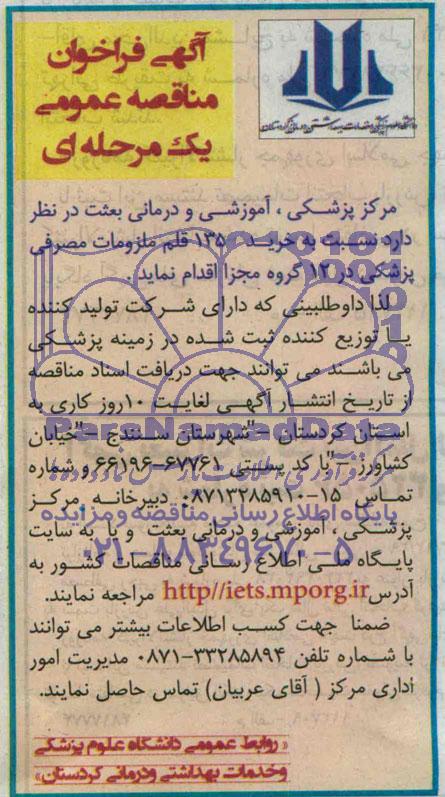 آگهی فراخوان
مناقصه عمومی
یک مرحله ای
مرکز پزشکی ، آموزشی و درمانی بعثت در نظر
دارد نسبت به خرید ۱۳۵۰ قلم ملزومات مصرفی
پزشکی در ۱۲ گروه مجزا اقدام نماید.
لذا داوطلبینی که دارای شرکت تولید کننده
یا توزیع کننده ثبت شده در زمینه پزشکی
می باشند می توانند جهت دریافت اسناد مناقصه
از تاریخ انتشار آگهی لغایت ۱۰روز کاری به
استان کردستان –"شهرستان سنندج –"خیابان
کشاورز –"با کد پستی ۶۷۷۶۱–۶۶۱۹۶ و شماره
تماس ۱۵–۰۸۷۱۳۲۸۵۹۱۰ دبیرخانه مرکز
پزشکی ، آموزشی و درمانی بعثت و یا به سایت
پایگاه ملی اطلاع رسانی مناقصات کشور به
آدرس http//iets.mporg.ir مراجعه نمایند.
ضمنا جهت کسب اطلاعات بیشتر می توانند
با شماره تلفن ۳۳۲۸۵۸۹۴–۰۸۷۱ مدیریت امور
اداری مرکز ( آقای عربیان) تماس حاصل نمایند.
« روابط عمومی دانشگاه علوم پزشکی
وخدمات بهداشتی ودرمانی کردستان»
ParsNamadData
پایگاه اطلاع رسانی مناقصه و مزایده
۰۲۱–۸۸۳۴۹۶۷۰–۵